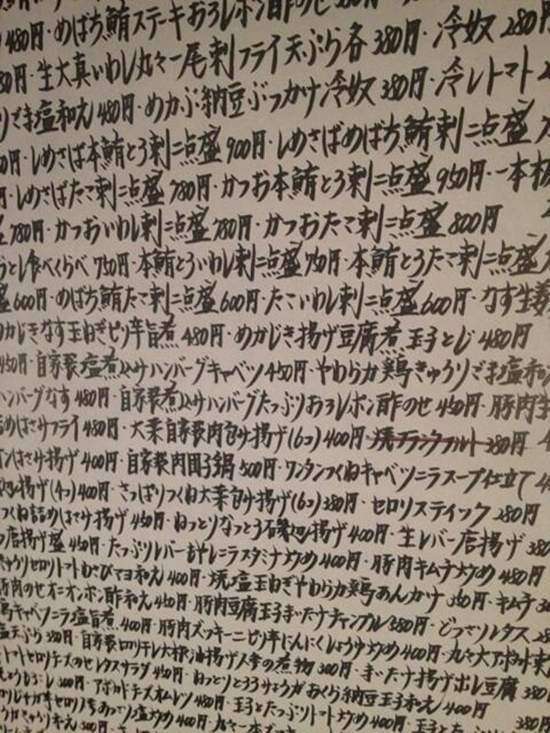 480円・めばち鮪ステーキおろしポン酢のせ 380円
生大真いわし丸々一尾刺フライ天ぷら各380円・冷奴280円
ごま塩和え480円・めかぶ納豆ぶっかけ冷奴380円・冷しトマト
しめさば本鮪とろ刺二点盛900円・しめさばめばち鮪刺二点盛
しめさばたこ刺二点盛780円・かつお本鮪とろ刺二点盛950円・一本
780円・かつおいわし刺二点盛780円・かつおたこ刺二点盛800円
食べくらべ750円・本鮪とろいわし刺二点盛750円・本鮪とろたこ刺二点盛
盛600円・めばち鮪たこ刺二点盛600円・たこいわし刺二点盛600円・なす生姜
めかじきなす玉ねぎピリ辛旨煮480円・めかじき揚げ豆腐煮玉子とじ480円
450円・自家製塩煮込みハンバーグキャベツ450円・やわらか鶏きゅうりごま塩和え
ハンバーグなす480円・自家製煮込みハンバーグたっぷりおろしポン酢のせ450円・豚肉生
はさみフライ480円・大葉自家製肉包み揚げ(6コ)400円・焼フランクフルト380円
はさみ揚げ400円・自家製肉団子鍋500円・ワンタンつくねキャベツニラスープ仕立て
揚げ(4コ)400円・さっぱりつくね大葉包み揚げ(6コ)380円・セロリスティック280円
つくね詰めはさみ揚げ450円・ねっとりなっとう石磯辺揚げ400円・生レバー唐揚げ380
唐揚げ盛450円・たっぷりレバーもやしニラスタミナ炒め400円・豚肉キムチ炒め480円
きゅうりセロリトマトわさびマヨ和え400円・焼塩玉ねぎやわらか鶏あんかけ350円・キムチ
豚肉のせオニオンポン酢和え450円・豚肉豆腐玉子まいたけチャンプル380円・どっさりレタス
キャベツニラ塩旨煮400円・豚肉ズッキーニピリ辛にんにくしょうゆ炒め400円・丸々大アボカド
天ぷら380円・自家製切りテレ大根油揚げ人参の煮物300円・まいたけ揚げポレ豆腐380円
トマトセロリチーズのせレタスサラダ450円・ねっとりとろろきゅうりおくら納豆玉子和え400円
300円・アボカドチーズオムレツ480円・玉子とたっぷりトマト炒め400円・玉子と
セロリ 塩炒め400円 380円
きゅうり和え300円